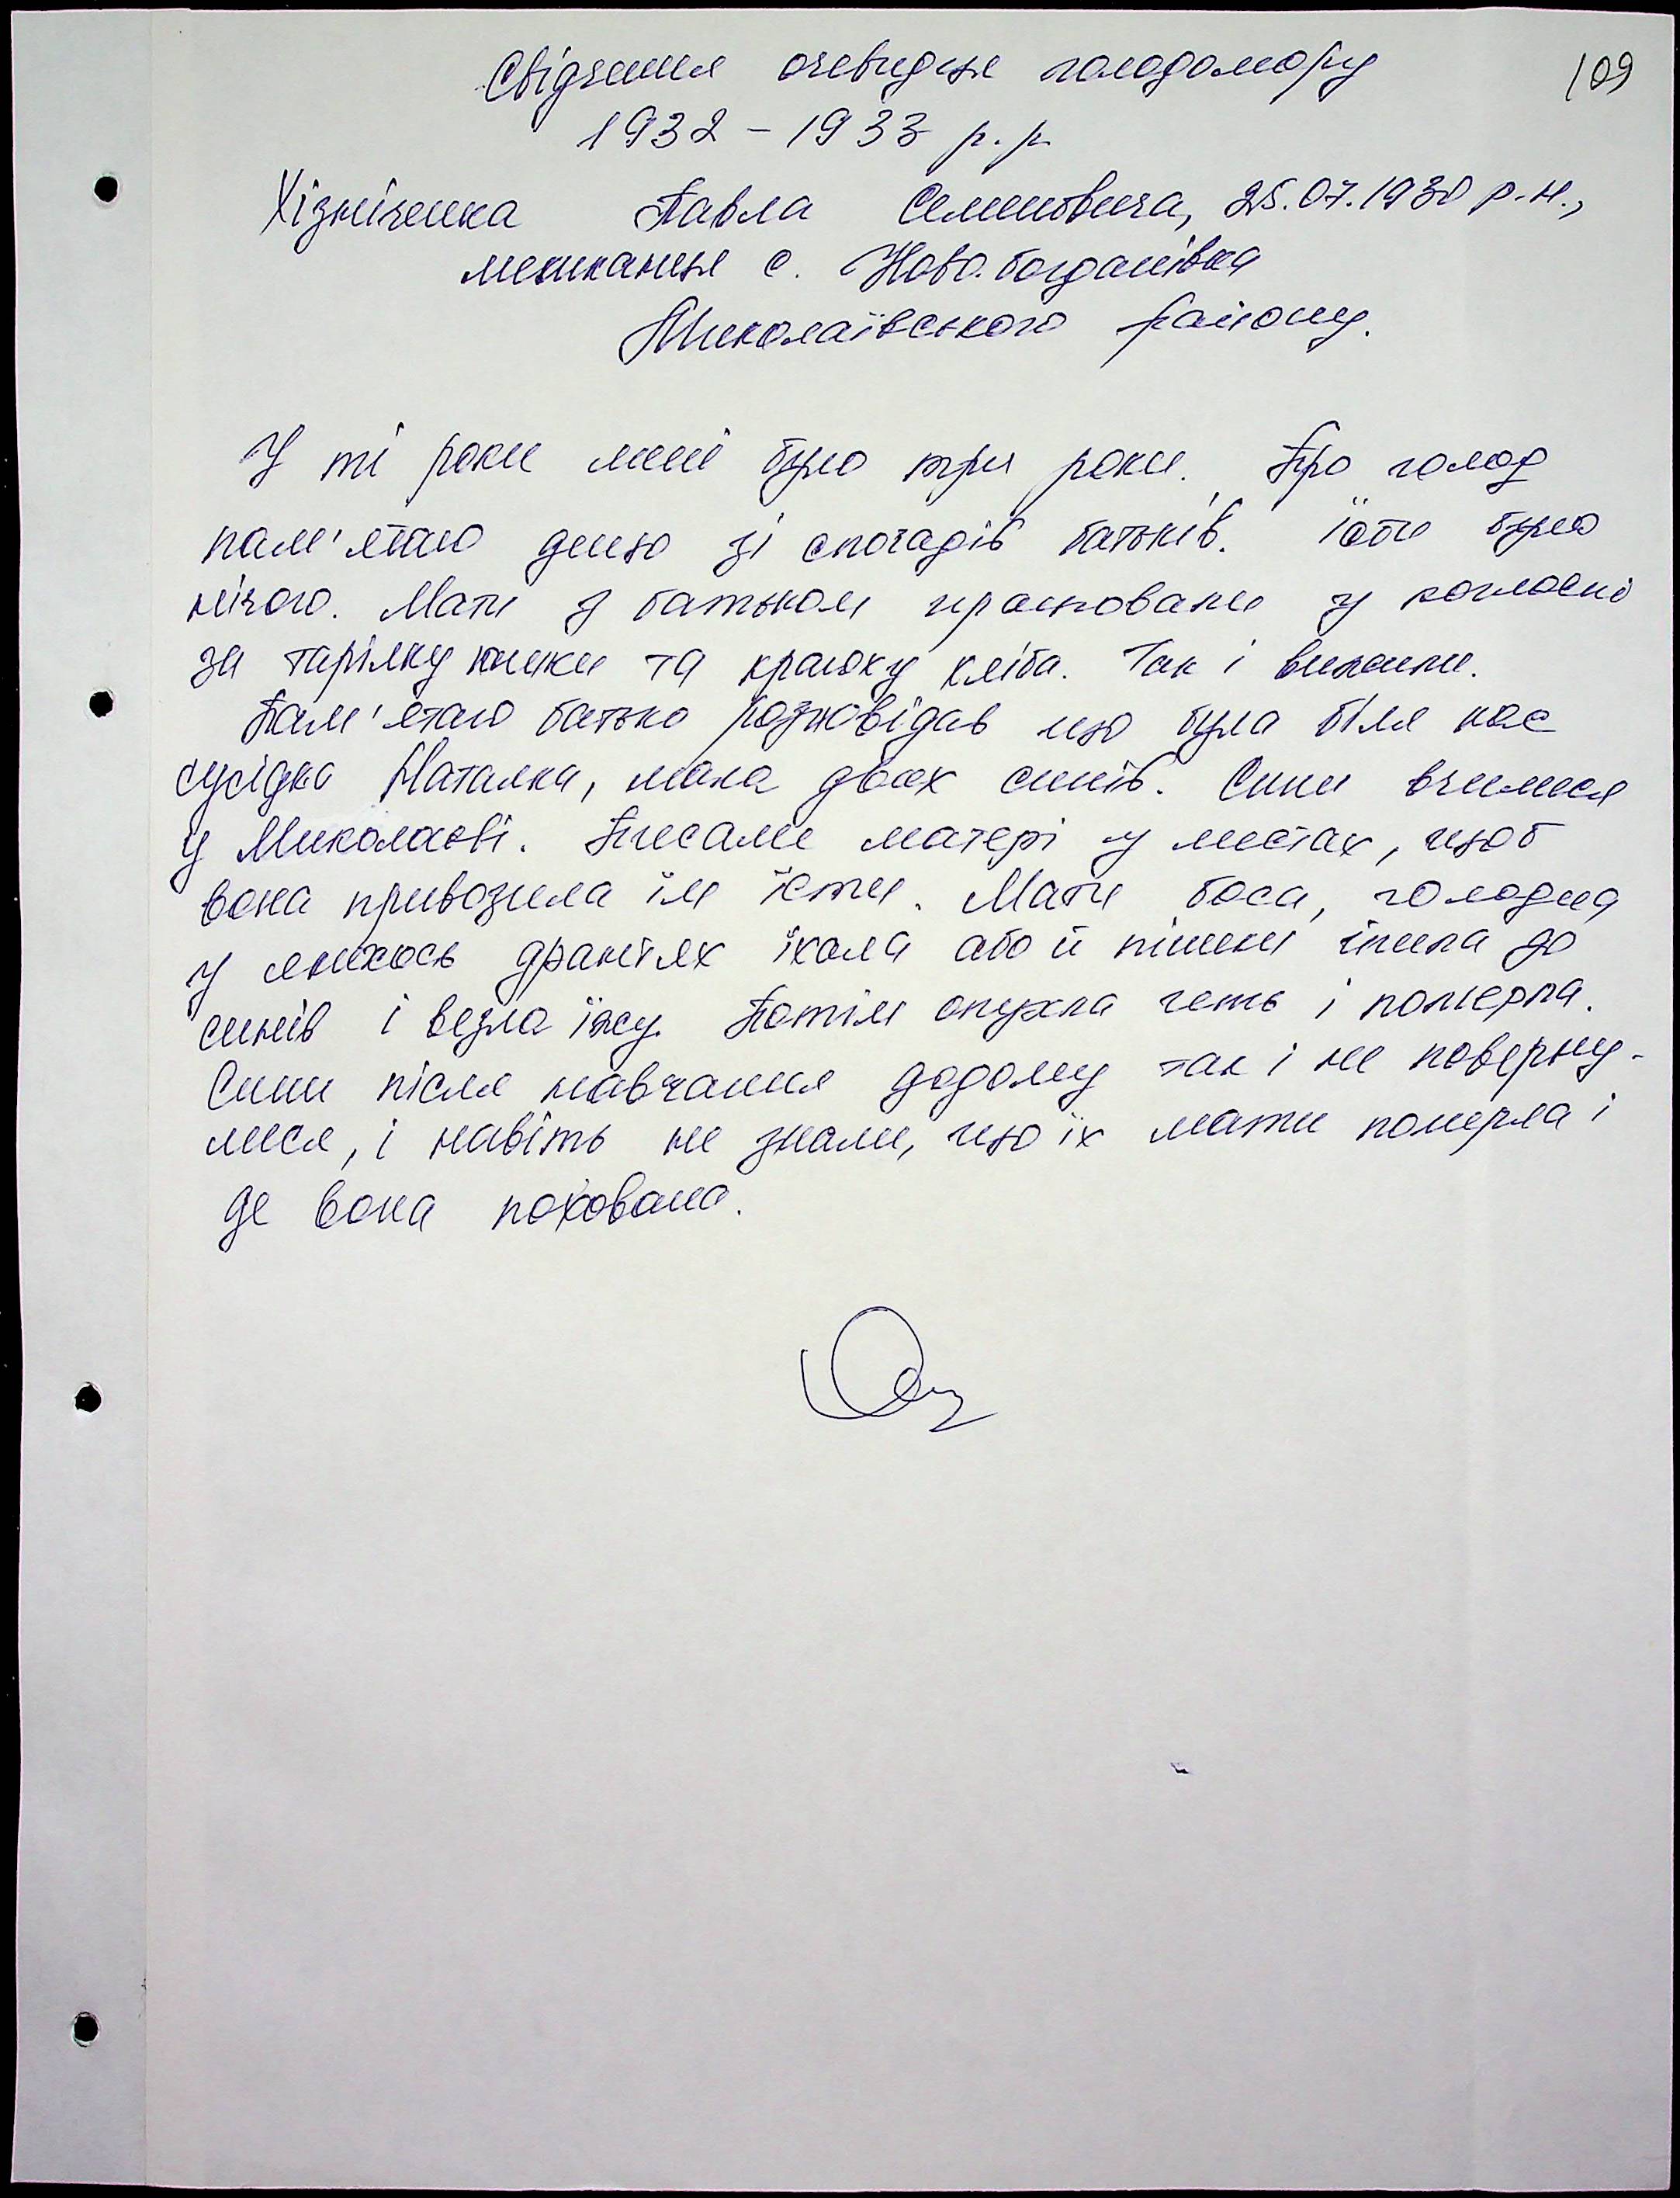 109
Свідчення очевидця голодомору
1932 – 1933 р.р
Хізніченка Павла Семеновича, 25.07.1930 р.н.,
мешканця с. Новобогданівка
Миколаївського району.
У ті роки мені було три роки. Про голод
пам'ятаю дещо зі спогадів батьків. Їсти було
нічого. Мати з батьком працювали у колгоспі
за тарілку юшки та крайку хліба. Так і вижили.
Пам'ятаю батько розповідав що була біля нас
сусідка Наталка, мала двох синів. Сини вчилися
у Миколаєві. Писали матері у листах, щоб
вона привозила їм їсти. Мати боса, голодна
у якихось дрантях їхала або й пішки ішла до
синів і везла їжу. Потім опухла геть і померла.
Сини після навчання додому так і не поверну-
лися, і навіть не знали, що їх мати померла і
де вона похована.